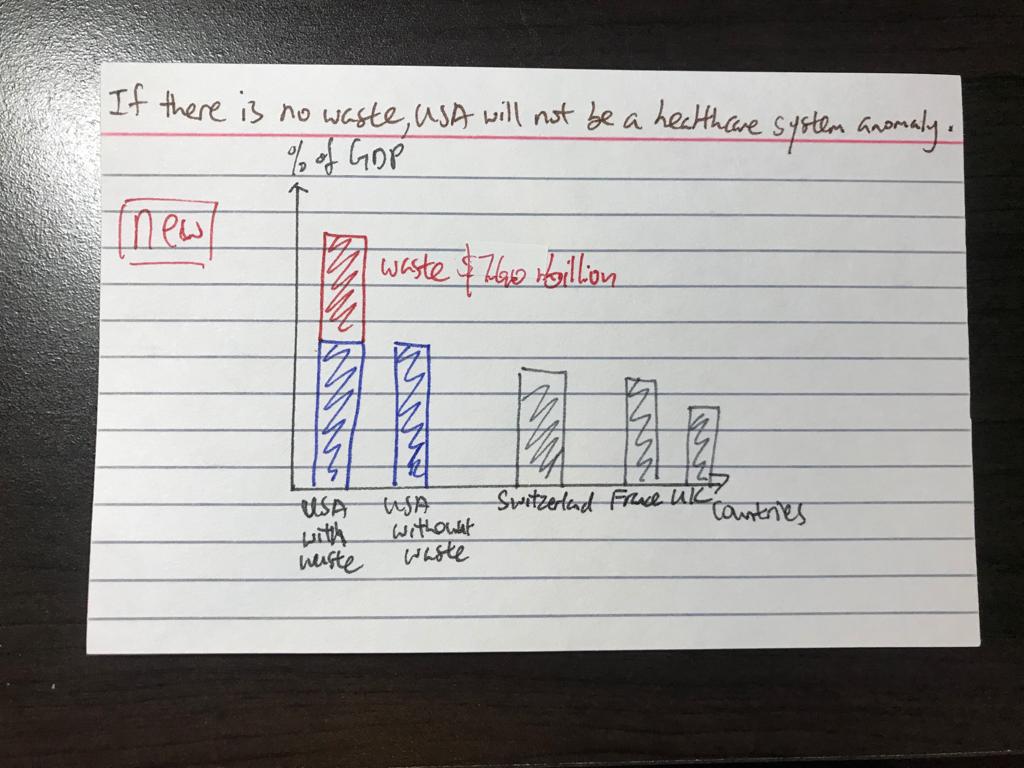 If there is no waste, USA will not be a healthcare system anomaly.
% of GDP
new
waste $760 billion
USA with waste
USA without waste
Switzerland
France
UK
Countries